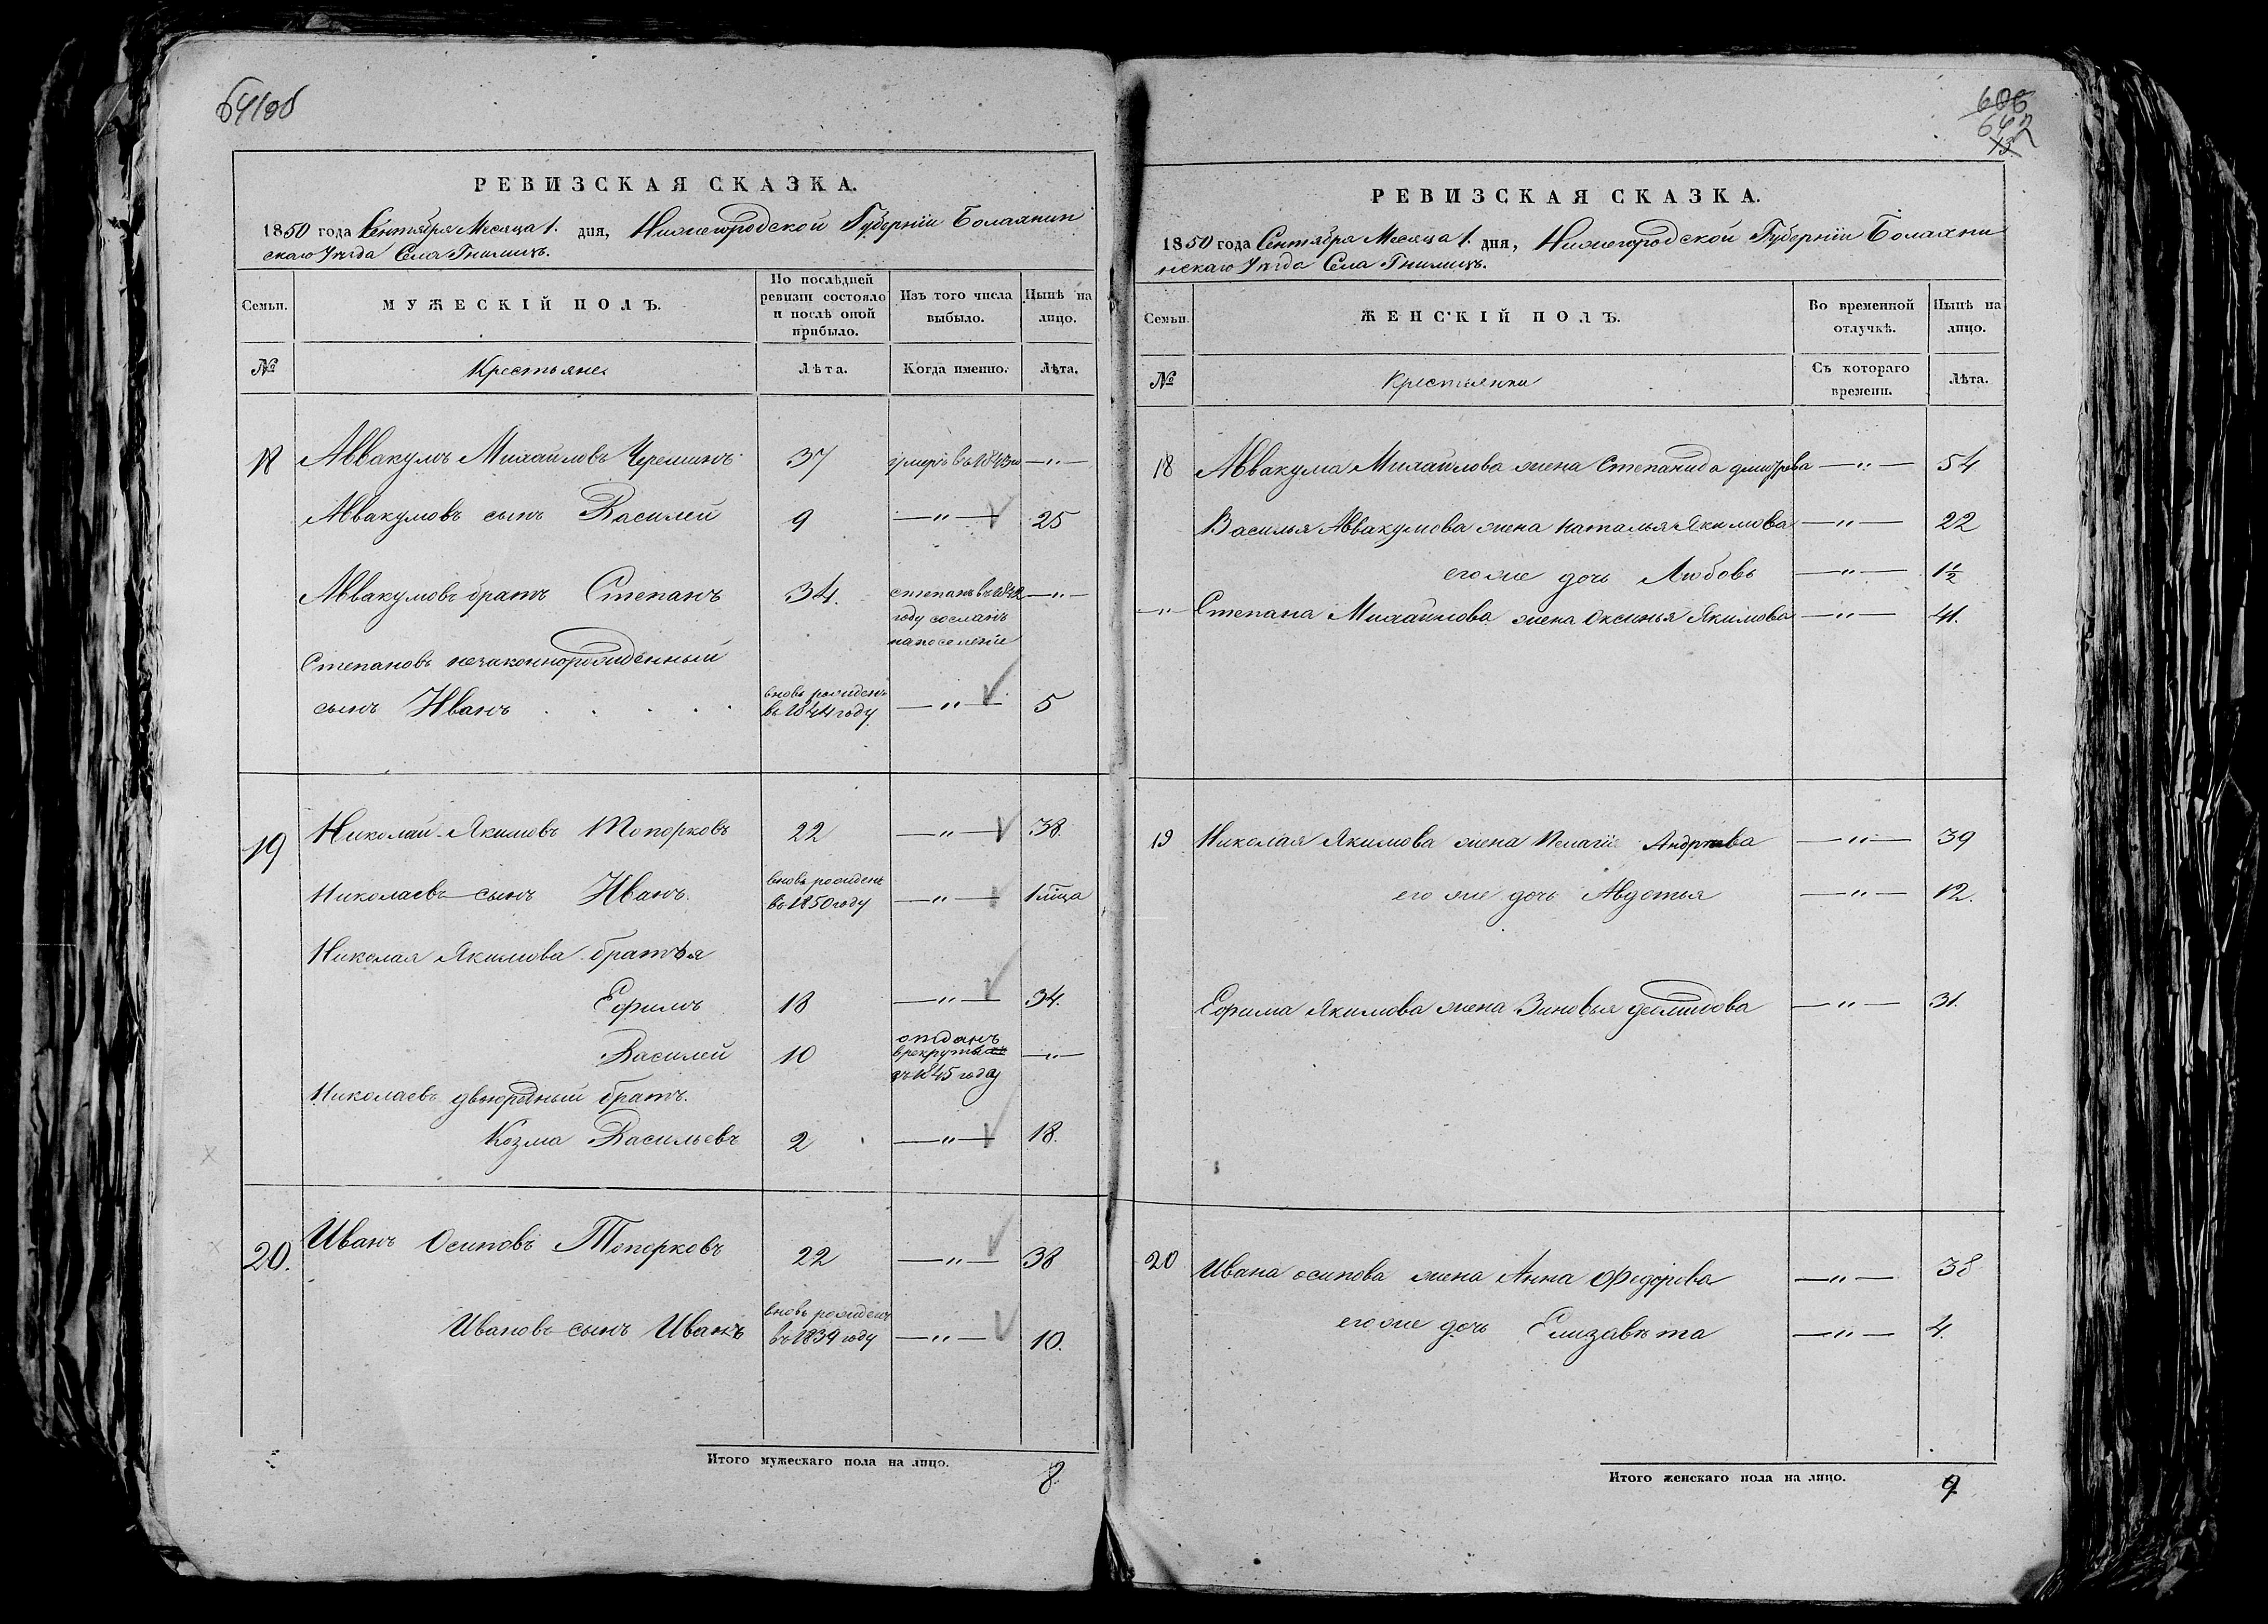 РЕВИЗСКАЯ СКАЗКА.
1850 года Сентября Месяца 1. дня, Нижегородской Губерніи Болахнин
скаго Уѣзда Села Гнилицъ.
Семьи.
МУЖЕСКІЙ ПОЛЪ.
По послѣдней ревизіи состояло и послѣ оной прибыло.
Изъ того числа выбыло.
Нынѣ на лицо.
№
Крестьяне
Лѣта.
Когда именно.
Лѣта.
18 Аввакумъ Михайловъ 37 умеръ въ 1843 —"—
Аввакумовъ сынъ Василей 9 —"— 25
Аввакумовъ братъ Степанъ 34. степанъ въ 1842 —"—
году сосланъ
на поселеніе
Степановъ незаконнорожденный
сынъ Иванъ . . . . . вновь рожденъ въ 1844 году —"— 5
19 Николай Якимовъ Топорковъ 22 —"— 38.
Николаевъ сынъ Иванъ. вновь рожденъ въ 1850 году —"— 1 м̃ца
Николая Якимова братья
Ефимъ 18 —"— 34.
Василей 10 отданъ в рекруты 1845 года —"—
Николаевъ двоюродный братъ.
Козма Васильевъ 2 —"— 18.
20. Иванъ Осиповъ Топорковъ 22 —"— 38
Ивановъ сынъ Иванъ вновь рожденъ въ 1839 году —"— 10.
Итого мужескаго пола на лицо. 8
РЕВИЗСКАЯ СКАЗКА.
1850 года Сентября Месяца 1. дня, Нижегородской Губерніи Болахни
нскаго Уѣзда Села Гнилицъ.
Семьи.
ЖЕНСКІЙ ПОЛЪ.
Во временной отлучкѣ.
Нынѣ на лицо.
№
Крестьянки
Съ котораго времени.
Лѣта.
18 Аввакума Михайлова жена Степанида дмитрева —"— 54
Василья Аввакумова жена наталья Якимова —"— 22
его же дочь Любовь —"— 1½
—"— Степана Михайлова жена Оксинья Якимова —"— 41.
19 Николая Якимова жена Пелагія Андрѣева —"— 39
его же дочь Авдотья —"— 12.
Ефима Якимова жена Зиновья демидова —"— 31.
20 Ивана осипова жена Анна Федорова —"— 38
его же дочь Елизавѣта —"— 4.
Итого женскаго пола на лицо. 9